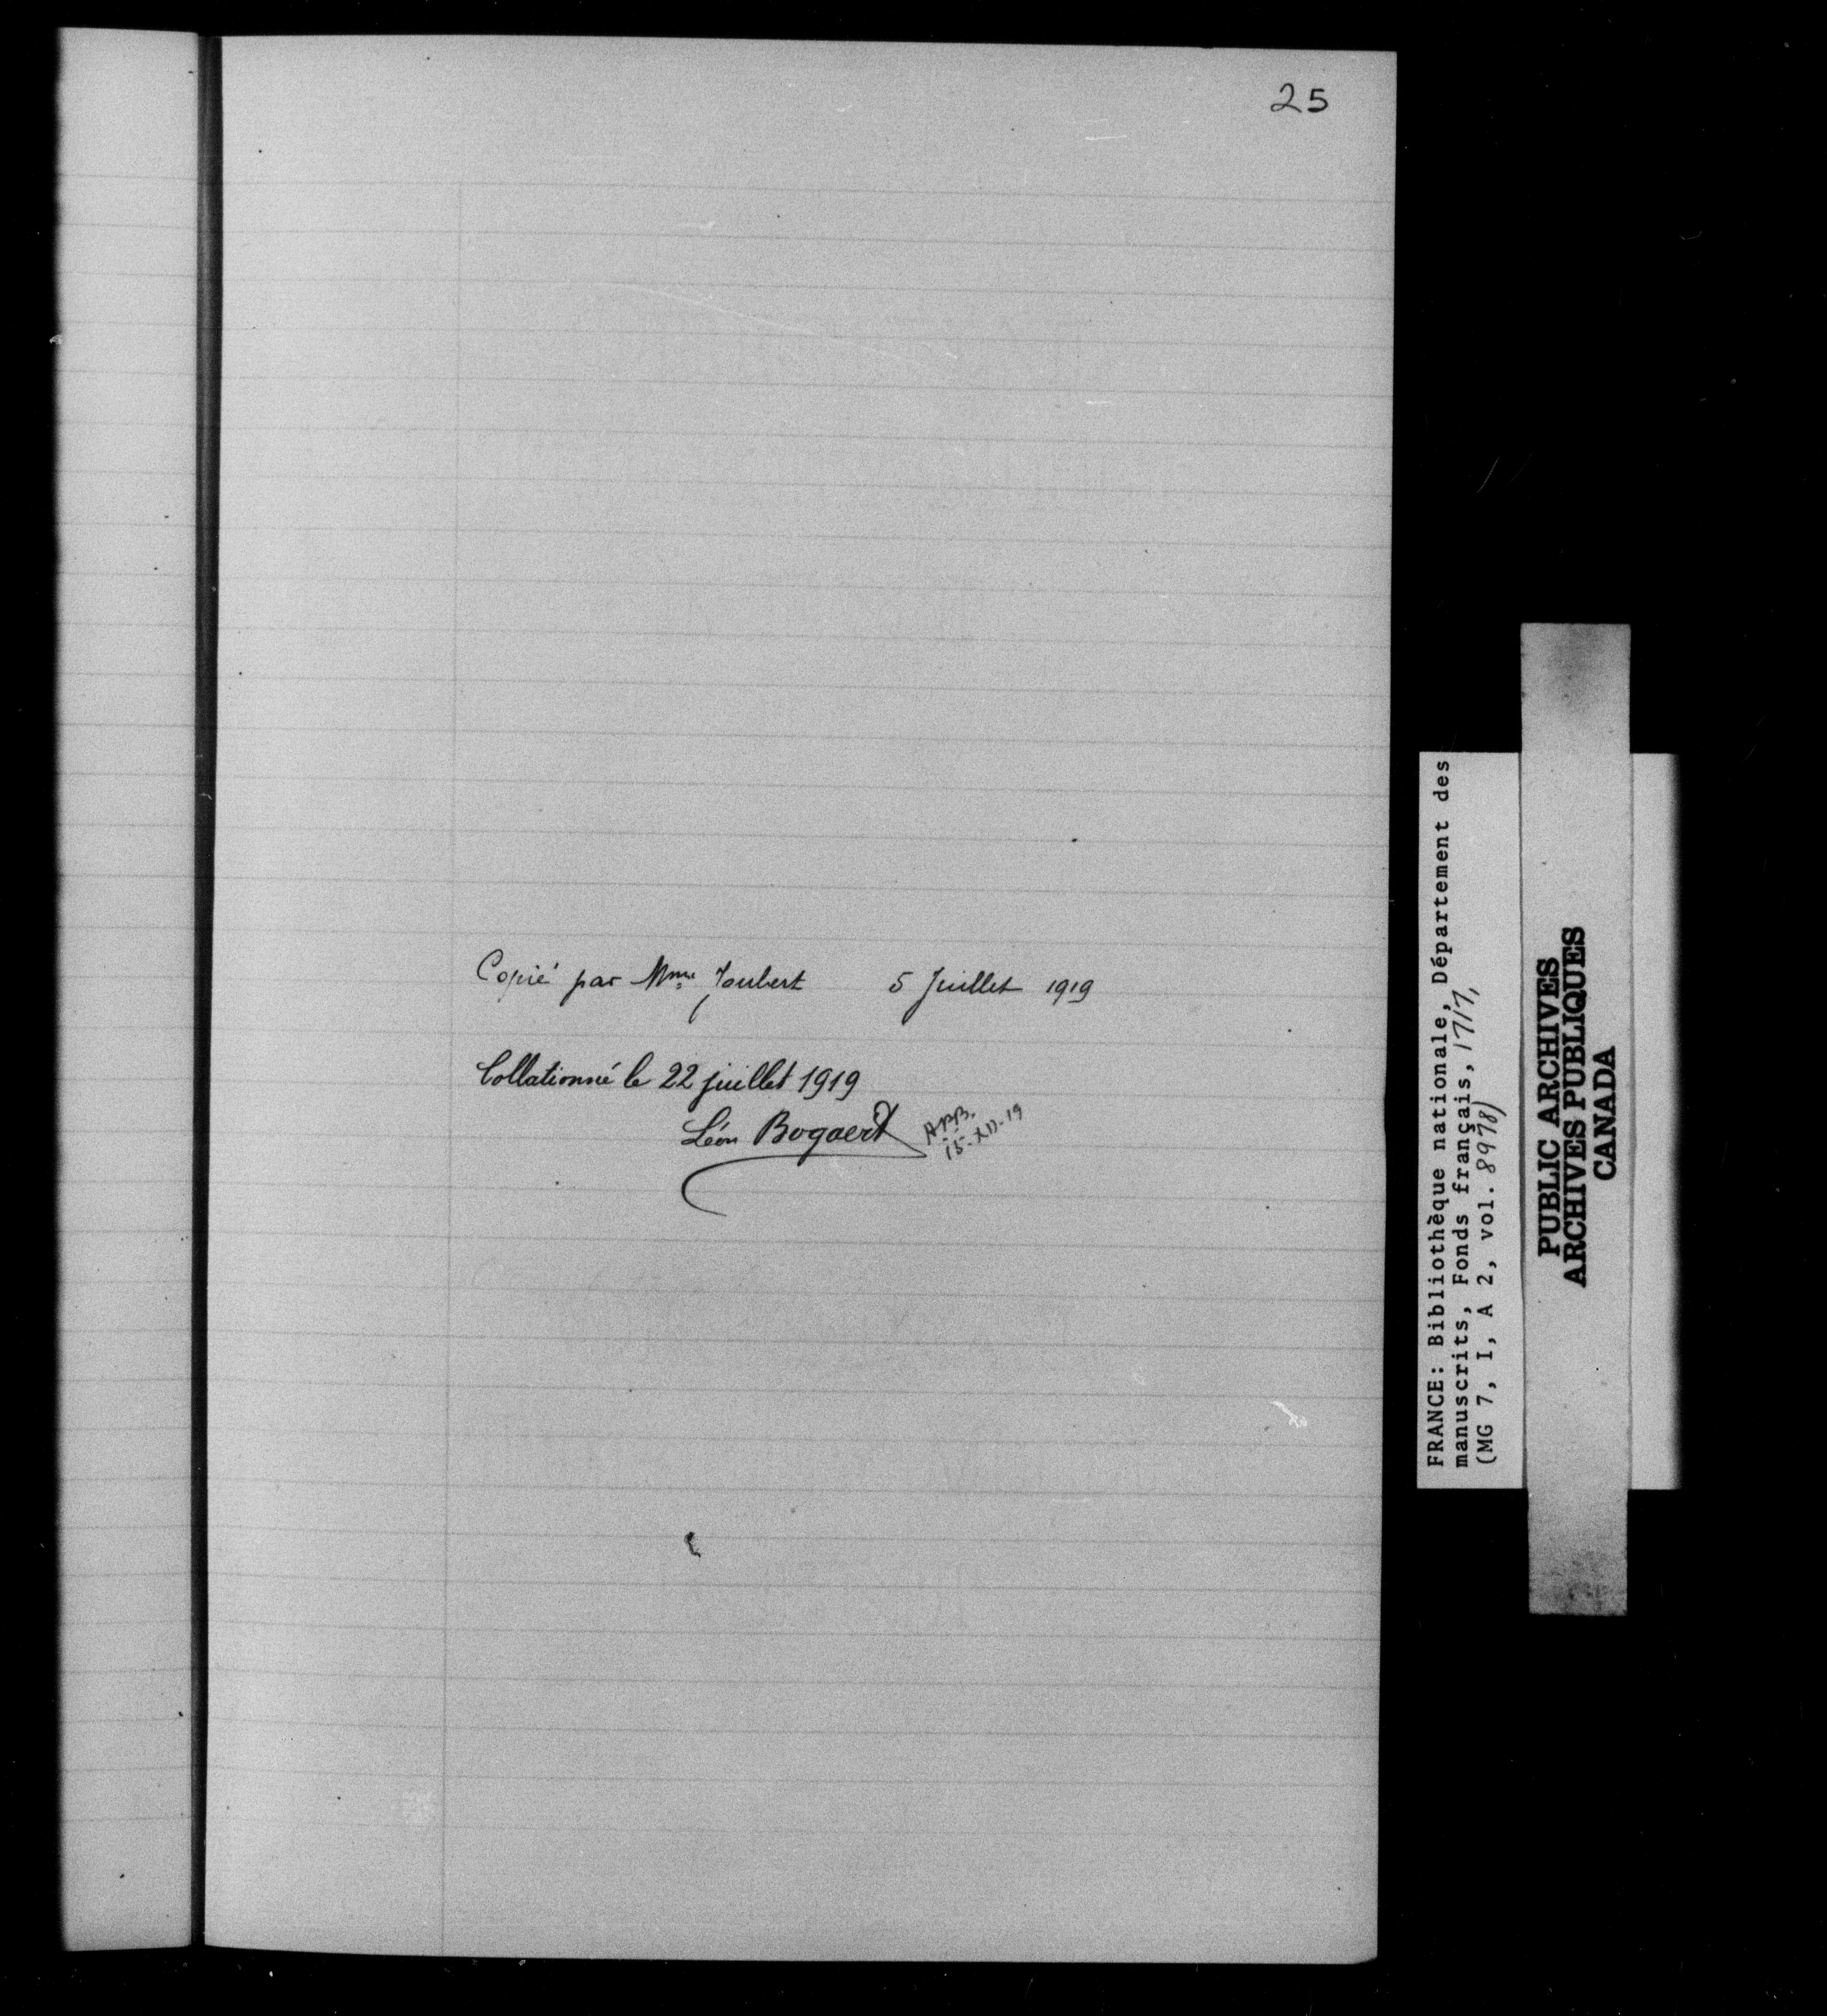 25
Copié par Mme Joubert 5 Juillet 1919
Collationné le 22 juillet 1919
Léon Bogaert
15-XII-19
FRANCE: Bibliothèque nationale, Département des
manuscrits, Fonds français, 1717,
(MG 7, I, A 2, vol. 8978)
PUBLIC ARCHIVES
ARCHIVES PUBLIQUES
CANADA